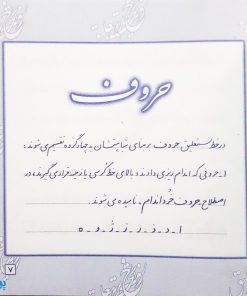 حروف
در خط نستعلیق حروف بر مبنای شباهتشان به چهار گروه تقسیم می شوند.
۱- حروفی که اندام ریزی دارند و بالای خط کرسی یا زمینه قرار می گیرند، در
اصطلاح، حروف خُرد اندام، نامیده می شوند.
ا - د - ذ - ر - ز - ژ - و - ه
۷